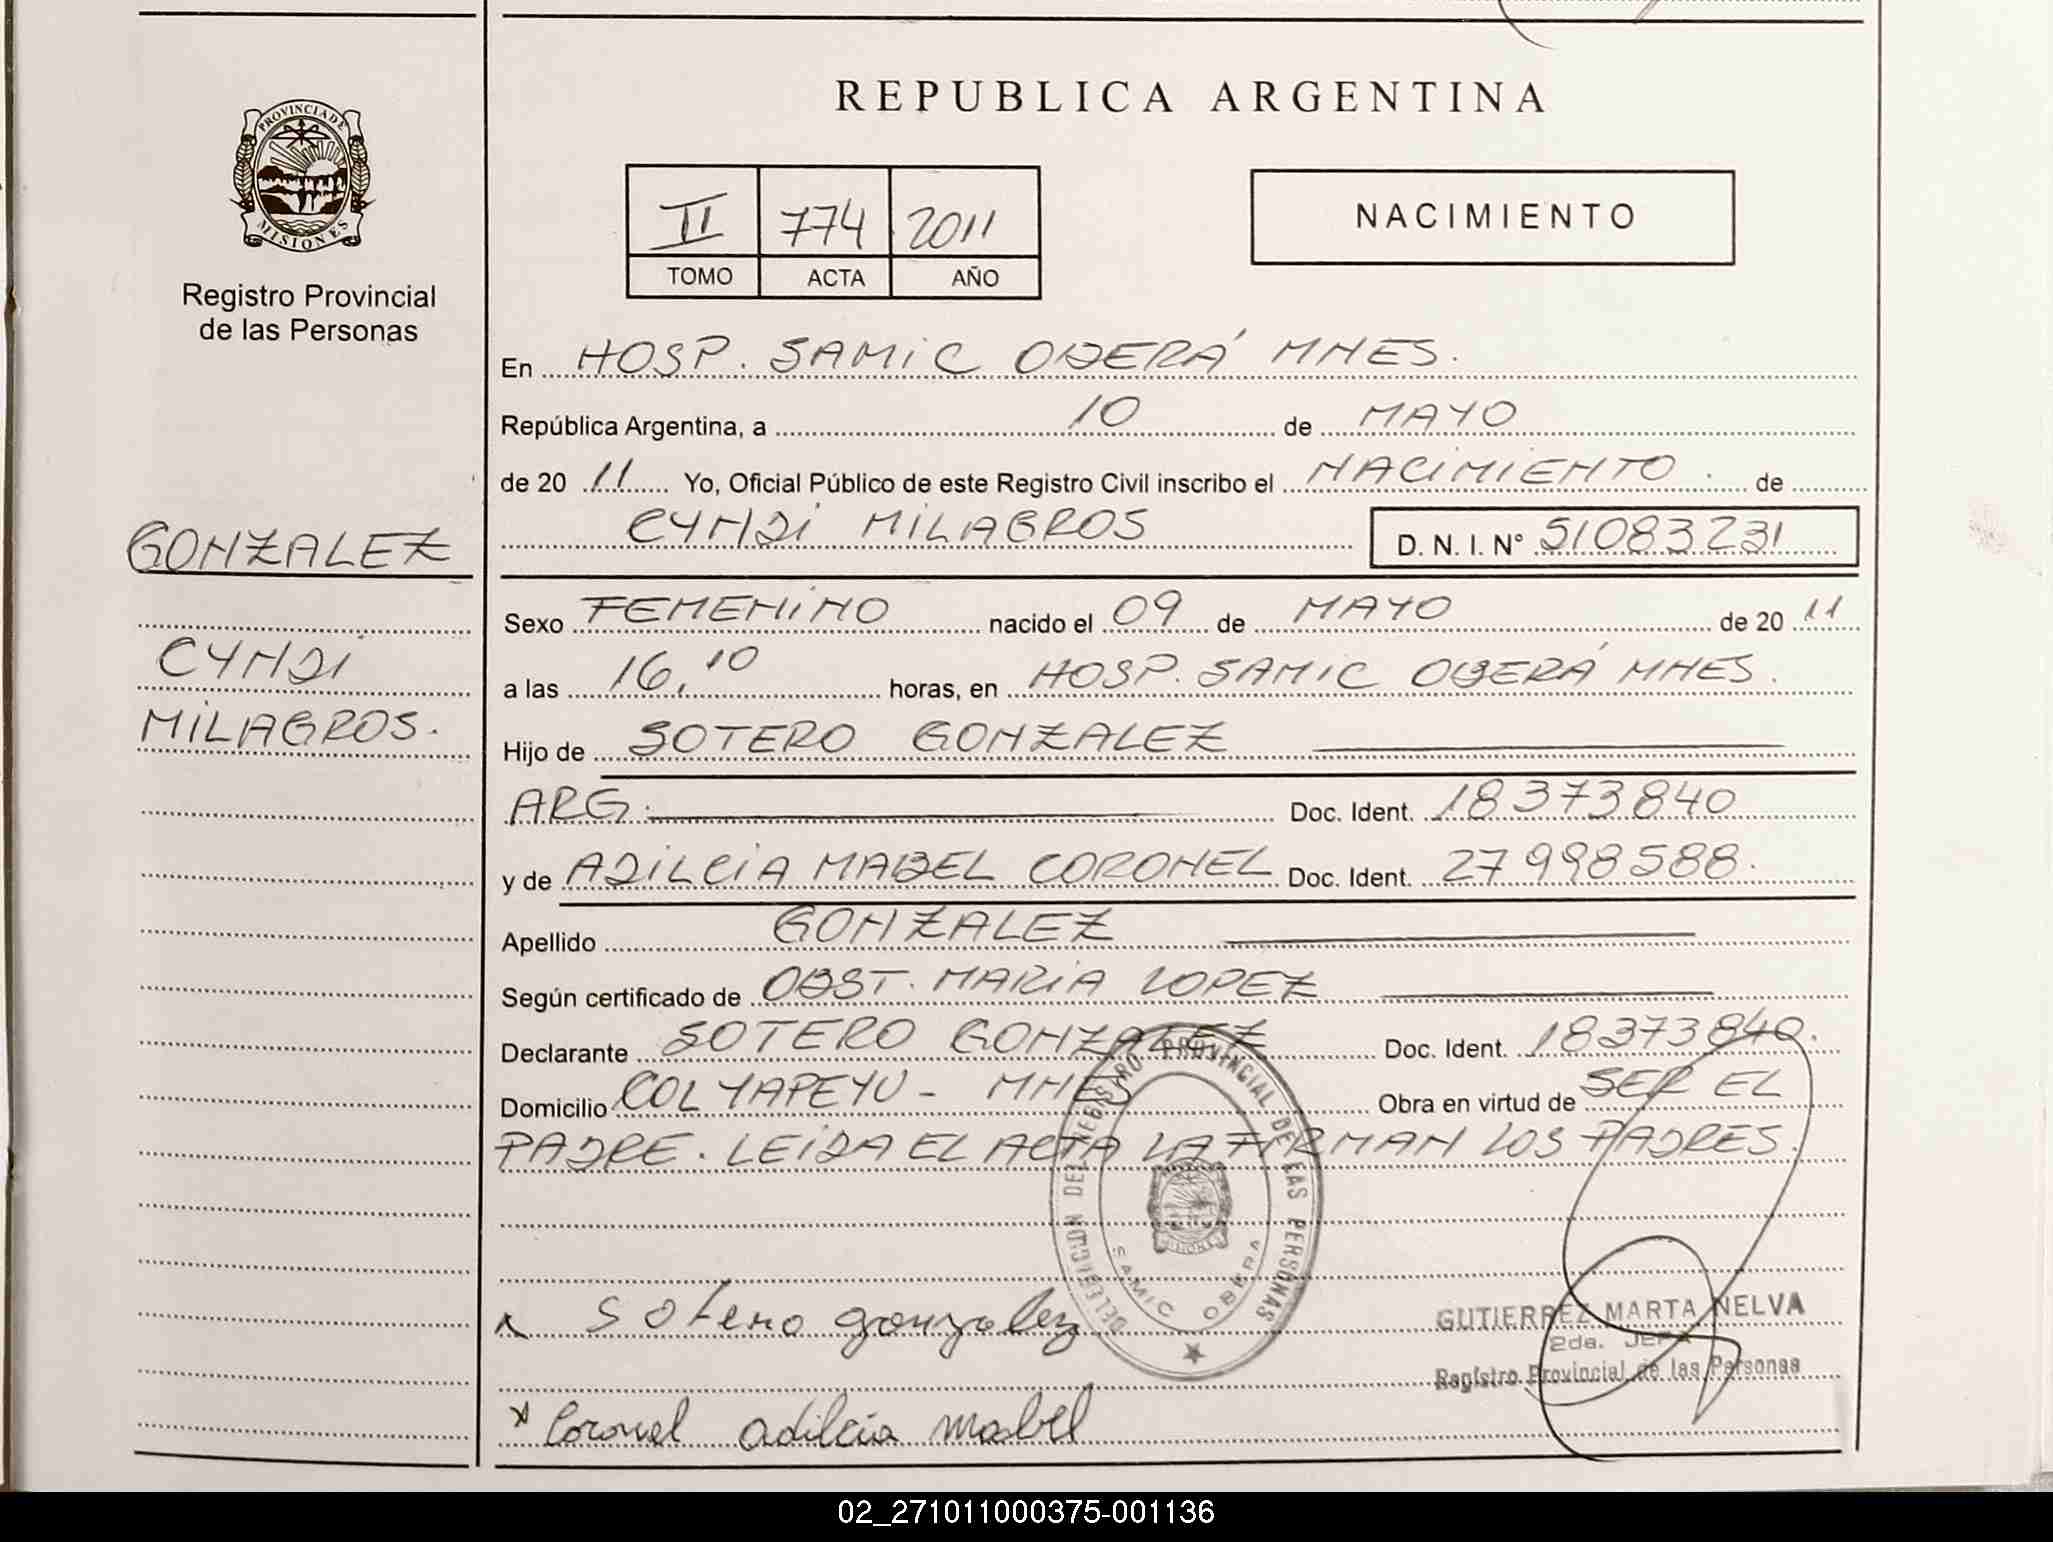 REPUBLICA ARGENTINA
PROVINCIA DE
MISIONES
Registro Provincial
de las Personas
II 774 2011
TOMO ACTA AÑO
NACIMIENTO
En HOSP. SAMIC OBERÁ MNES.
República Argentina, a 10 de MAYO
de 20 11 Yo, Oficial Público de este Registro Civil inscribo el NACIMIENTO. de
CYNDI MILAGROS D. N. I. N° 51083231
GONZALEZ
CYNDI
MILAGROS.
Sexo FEMENINO nacido el 09 de MAYO de 20 11
a las 16,10 horas, en HOSP. SAMIC OBERÁ MNES.
Hijo de SOTERO GONZALEZ
ARG. Doc. Ident. 18373840
y de ADILCIA MABEL CORONEL Doc. Ident. 27998588.
Apellido GONZALEZ
Según certificado de OBST. MARIA LOPEZ
Declarante SOTERO GONZALEZ Doc. Ident. 18373840.
Domicilio COL YAPEYU - MNES Obra en virtud de SER EL
PADRE. LEIDA EL ACTA LA FIRMAN LOS PADRES.
DELEGICION DEL REGISTRO PROVINCIAL DE LAS PERSONAS
MISIONES
SAMIC OBERA
x Sotero gonzalez
GUTIERREZ MARTA NELVA
2da. JEFA
Registro Provincial de las Personas
x Coronel adilcia mabel
02_271011000375-001136